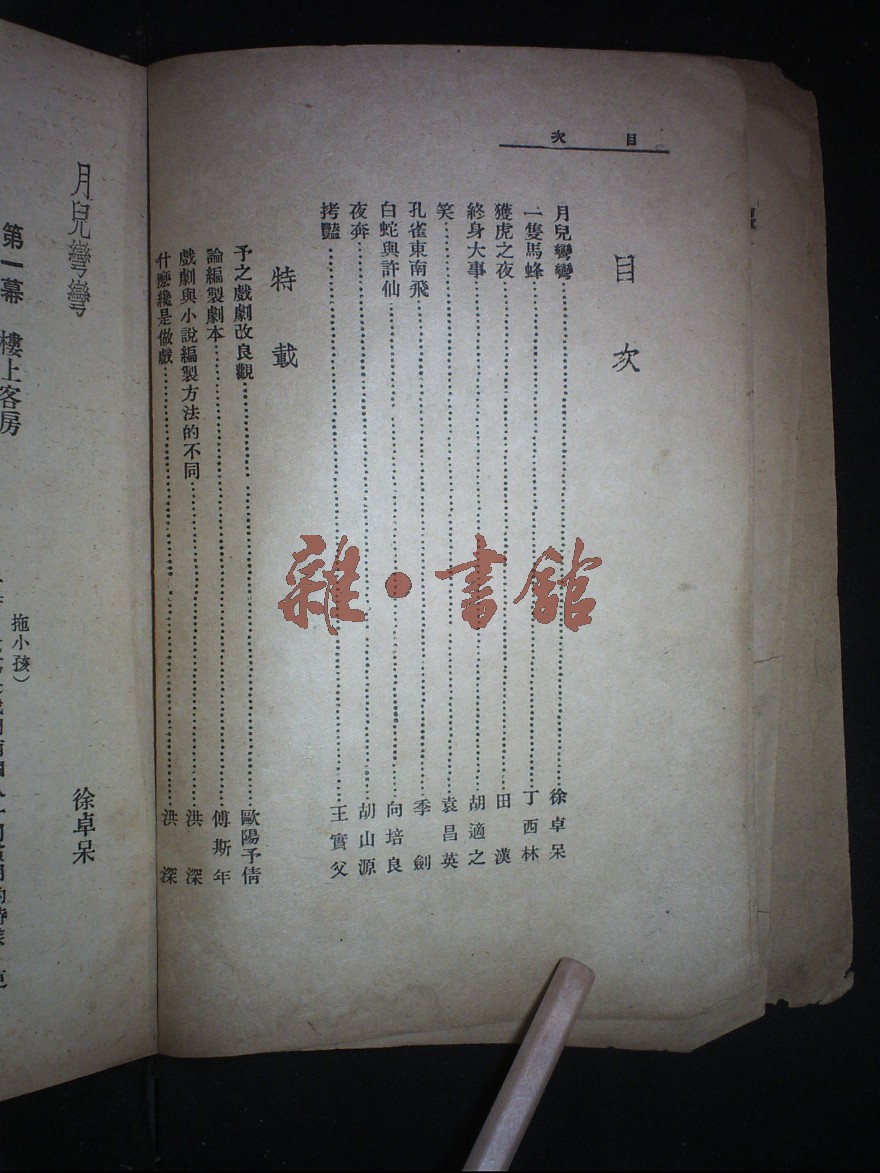 目次
目次
月兒彎彎 徐卓呆
一隻馬蜂 丁西林
獲虎之夜 田漢
終身大事 胡適之
笑 袁昌英
孔雀東南飛 季劍
白蛇與許仙 向培良
夜奔 胡山源
拷豔 王實父
特載
予之戲劇改良觀 歐陽予倩
論編製劇本 傅斯年
戲劇與小說編製方法的不同 洪深
什麽纔是做戲 洪深
月兒彎彎
徐卓呆
第一幕 樓上客房
拖小孩）
雜·書館